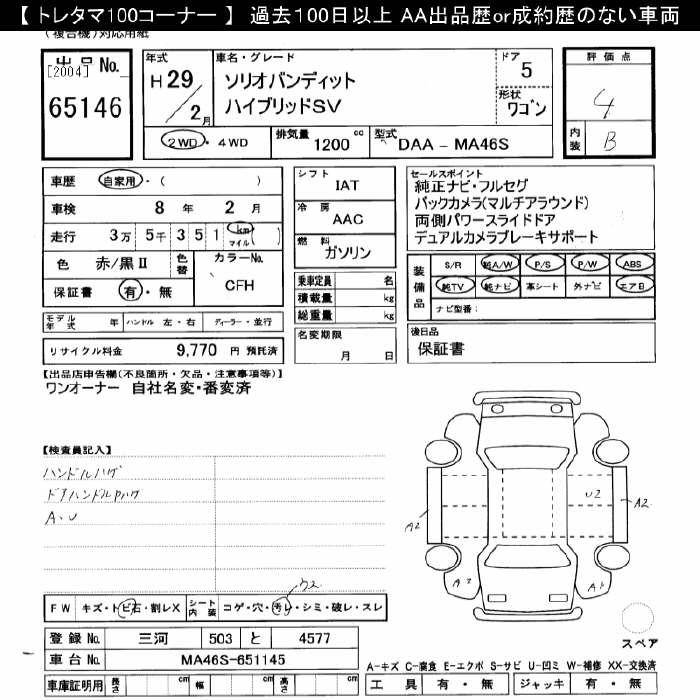 【 トレタマ100コーナー 】 過去100日以上 AA出品歴or成約歴のない車両
(複合機)対応用紙
出品 No.
[2004]
65146
年式
H 29 / 2 月
車名・グレード
ソリオバンディット
ハイブリッドSV
ドア
5
形状
ワゴン
2WD・4WD
排気量 1200 cc
型式 DAA - MA46S
評価点
4
内装 B
車歴 自家用・( )
車検 8 年 2 月
走行 3万 5千 3 5 1 km マイル ( )
色 赤/黒Ⅱ
色替
カラーNo.
CFH
保証書 有・無
シフト
IAT
冷房
AAC
燃料
ガソリン
乗車定員 名
積載量 kg
総重量 kg
セールスポイント
純正ナビ・フルセグ
バックカメラ(マルチアラウンド)
両側パワースライドドア
デュアルカメラブレーキサポート
装備品
S/R 純A/W P/S P/W ABS
純TV 純ナビ 革シート 外ナビ エアB
ナビ型番:
モデル年式 年 ハンドル 左・右 ディーラー・並行
リサイクル料金 9,770 円 預託済
名変期限
月 日
後日品
保証書
【出品店申告欄(不良箇所・欠品・注意事項等)】
ワンオーナー 自社名変・番変済
【検査員記入】
ハンドルハゲ
ドアハンドルPハゲ
A、U
U2
A2
A2
ウス
FW キズ・トビ石・割レX
シート内装 コゲ・穴・汚レ・シミ・破レ・スレ
スペア
登録 No. 三河 503 と 4577
車台 No. MA46S-651145
A-キズ C-腐食 E-エクボ S-サビ U-凹ミ W-補修 XX-交換済
車庫証明用 長さ cm 幅 cm 高さ cm
工具 有・無 ジャッキ 有・無